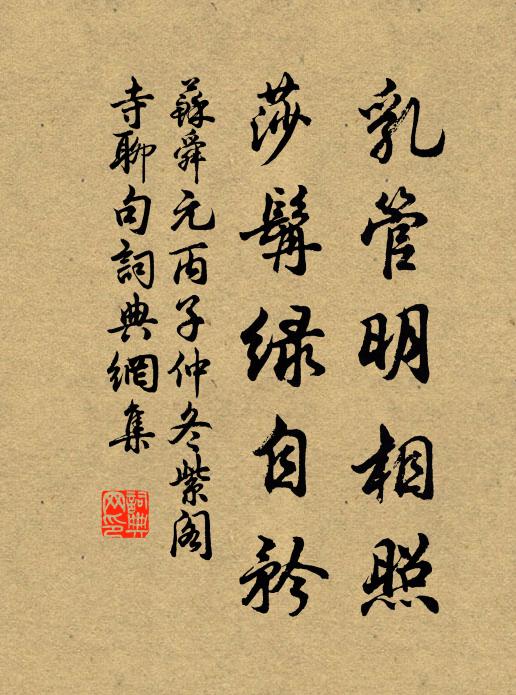 乳管明相照
莎髯绿自矜
蘇舜元丙子仲冬紫阁
寺聊句詞典網集
詞典网印